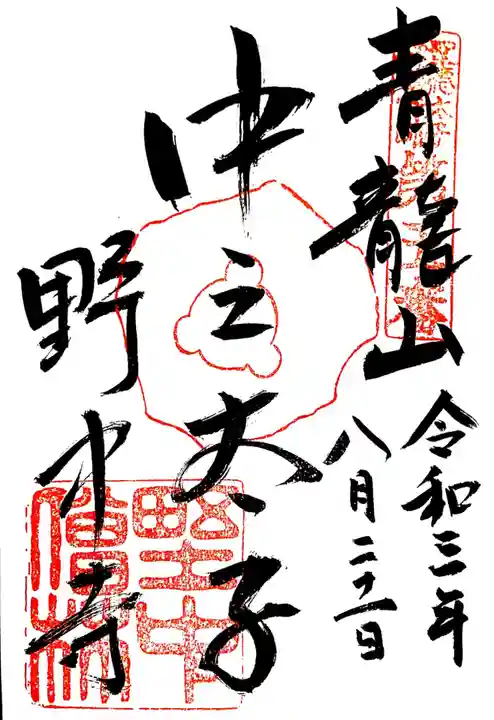 青龍山
令和三年
八月二十一日
中之太子
野中寺
野中僧林